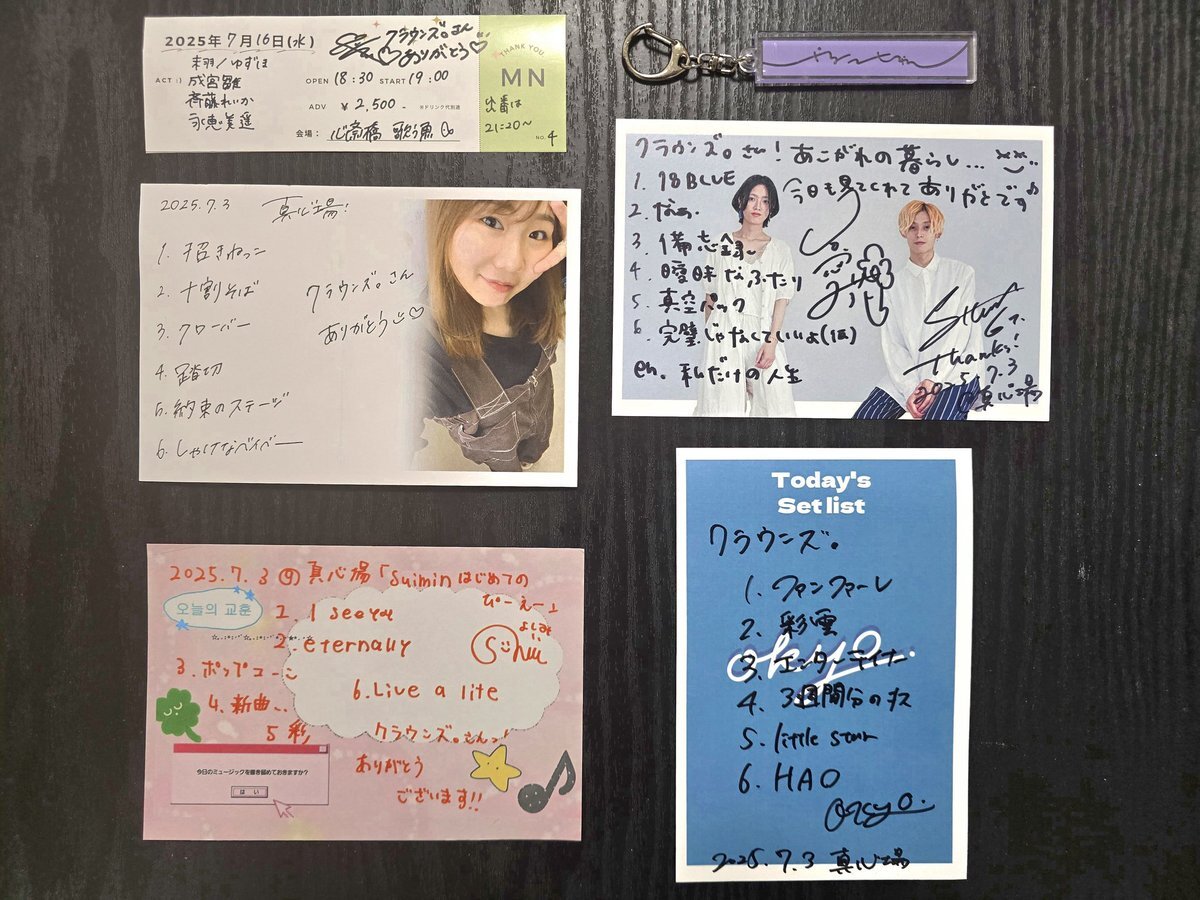 2025年7月16日(水)
ACT:)
未羽/ゆずは
成宮雛
斉藤れいか
永恵美遥
クラウンズ。さん
ありがとう♡
OPEN 18:30 START 19:00
ADV ¥2,500- ※ドリンク代別途
会場: 心斎橋 歌う魚
THANK YOU
MN
出番は
21:20〜
NO. 4
2025.7.3 真心場!
1. 招きねっこ
2. 十割そば
3. クローバー
4. 踏切
5. 約束のステージ
6. しゃけなベイベー
クラウンズ。さん
ありがとう♡
クラウンズ。さん!あこがれの暮らし...
今日も見てくれてありがとです♪
1. 18BLUE
2. なぁ.
3. 備忘録
4. 曖昧なふたり
5. 真空パック
6. 完璧じゃなくていいよ(仮)
en. 私だけの人生
thanks!
2025.7.3
@真心場
2025.7.3 @真心場「Suiminはじめての
ぴーえー」
오늘의 교훈
1. I see you
2. eternally
3. ポップコーン
4. 新曲..
5 彩
6. Live a lite
クラウンズ。さんっ!
ありがとう
ございます!!
今日のミュージックを書き留めておきますか?
はい
Today's
Set list
クラウンズ。
1. ファンファーレ
2. 彩雲
3. エンターテイナー
4. 3週間分のキス
5. little star
6. HAO
okyo.
2025.7.3 真心場